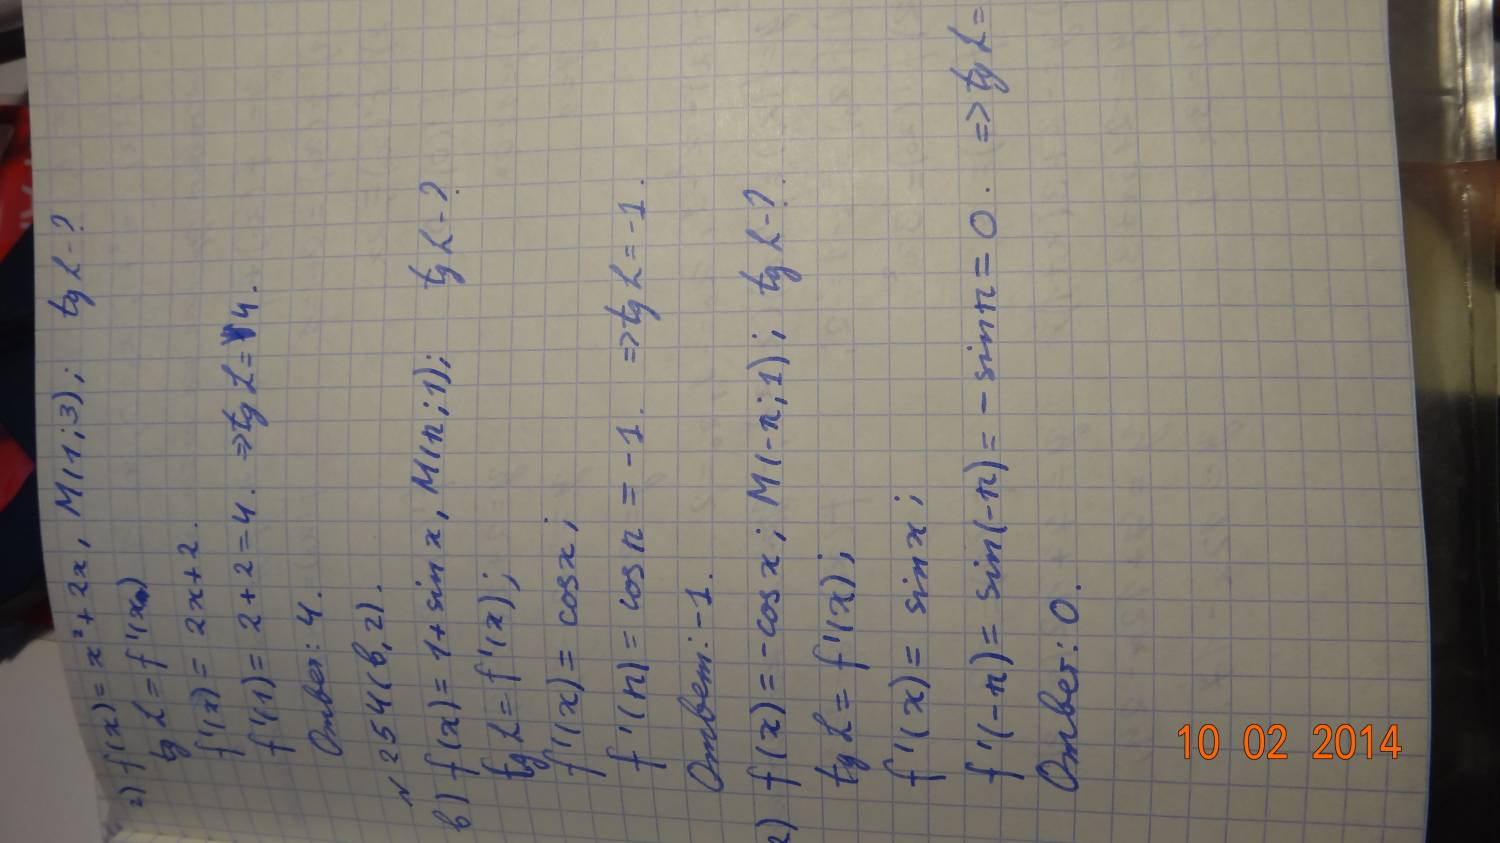 г) f(x) = x² + 2x, M(1; 3); tg α - ?
tg α = f'(x)
f'(x) = 2x + 2.
f'(1) = 2 + 2 = 4. => tg α = 4.
Ответ: 4.
№ 254 (в, г).
в) f(x) = 1 + sin x, M(π; 1); tg α - ?
tg α = f'(x);
f'(x) = cos x;
f'(π) = cos π = -1. => tg α = -1.
Ответ: -1.
г) f(x) = -cos x; M(-π; 1); tg α - ?
tg α = f'(x);
f'(x) = sin x;
f'(-π) = sin(-π) = - sin π = 0. => tg α =
Ответ: 0.
10 02 2014